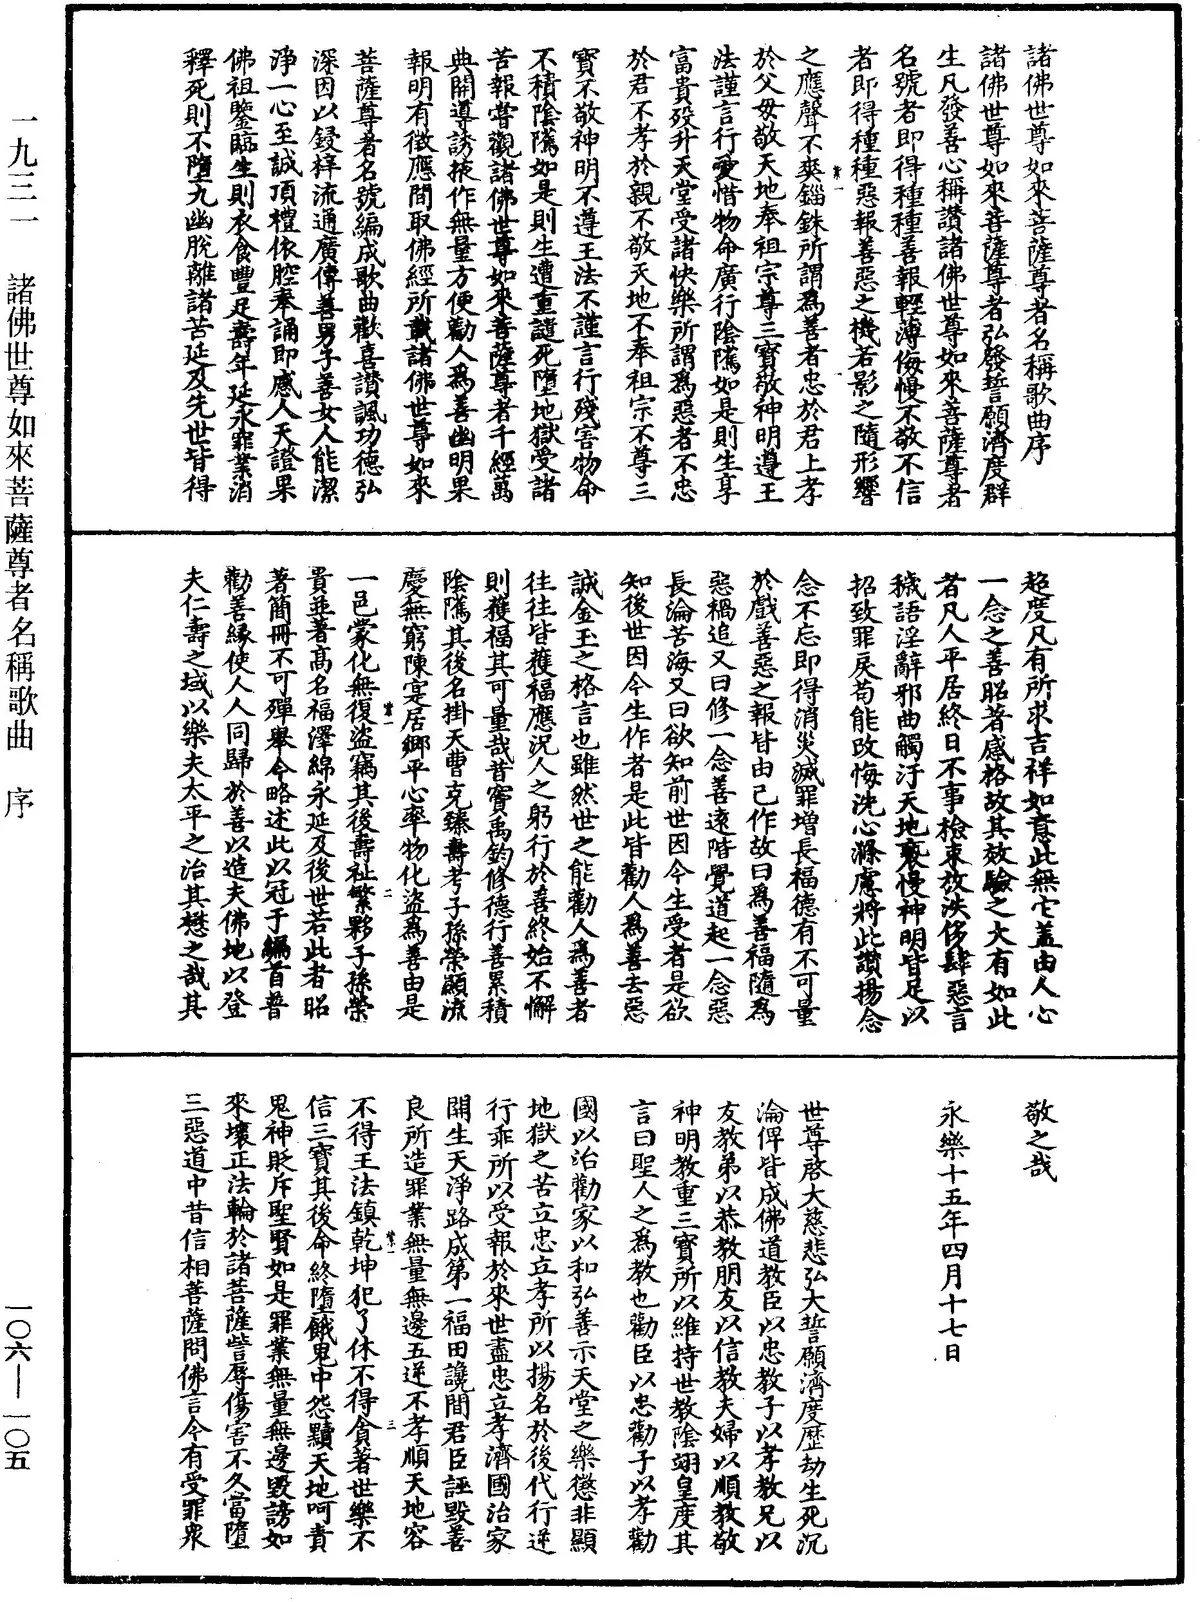 諸佛世尊如來菩薩尊者名稱歌曲序
諸佛世尊如來菩薩尊者弘發誓願濟度群
生凡發善心稱讚諸佛世尊如來菩薩尊者
名號者即得種種善報輕薄侮慢不敬不信
者即得種種惡報善惡之機若影之隨形響
之應聲不爽錙銖所謂為善者忠於君上孝
於父母敬天地奉祖宗尊三寶敬神明遵王
法謹言行愛惜物命廣行陰隲如是則生享
富貴歿升天堂受諸快樂所謂為惡者不忠
於君不孝於親不敬天地不奉祖宗不尊三
寶不敬神明不遵王法不謹言行殘害物命
不積陰隲如是則生遭重譴死墮地獄受諸
苦報嘗觀諸佛世尊如來菩薩尊者千經萬
典開導誘掖作無量方便勸人為善幽明果
報明有徵應間取佛經所載諸佛世尊如來
菩薩尊者名號編成歌曲歡喜讚諷功德弘
深因以鋟梓流通廣傳善男子善女人能潔
淨一心至誠頂禮依腔奉誦即感人天證果
佛祖鑒臨生則衣食豐足壽年延永罪業消
釋死則不墮九幽脫離諸苦延及先世皆得
超度凡有所求吉祥如意此無它蓋由人心
一念之善昭著感格故其效驗之大有如此
者凡人平居終日不事檢束放泆侈肆惡言
穢語淫辭邪曲觸汙天地褻慢神明皆足以
招致罪戾苟能改悔洗心滌慮將此讚揚念
念不忘即得消災滅罪增長福德有不可量
於戲善惡之報皆由己作故曰為善福隨為
惡禍追又曰修一念善遠階覺道起一念惡
長淪苦海又曰欲知前世因今生受者是欲
知後世因今生作者是此皆勸人為善去惡
誠金玉之格言也雖然世之能勸人為善者
往往皆獲福應況人之躬行於善終始不懈
則獲福其可量哉昔竇禹鈞修德行善累積
陰隲其後名掛天曹克臻壽考子孫榮顯流
慶無窮陳寔居鄉平心率物化盜為善由是
一邑蒙化無復盜竊其後壽祉繁夥子孫榮
貴並著高名福澤綿永延及後世若此者昭
著簡冊不可殫舉今略述此以冠于編首普
勸善緣使人人同歸於善以造夫佛地以登
夫仁壽之域以樂夫太平之治其懋之哉其
敬之哉
永樂十五年四月十七日
世尊啓大慈悲弘大誓願濟度歷劫生死沉
淪俾皆成佛道教臣以忠教子以孝教兄以
友教弟以恭教朋友以信教夫婦以順教敬
神明教重三寶所以維持世教陰翊皇度其
言曰聖人之為教也勸臣以忠勸子以孝勸
國以治勸家以和弘善示天堂之樂懲非顯
地獄之苦立忠立孝所以揚名於後代行逆
行乖所以受報於來世盡忠立孝濟國治家
開生天淨路成第一福田讒間君臣誣毀善
良所造罪業無量無邊五逆不孝順天地容
不得王法鎮乾坤犯了休不得貪著世樂不
信三寶其後命終墮餓鬼中怨黷天地呵責
鬼神貶斥聖賢如是罪業無量無邊毀謗如
來壞正法輪於諸菩薩訾辱傷害不久當墮
三惡道中昔信相菩薩問佛言今有受罪衆
一九三一 諸佛世尊如來菩薩尊者名稱歌曲 序
一〇六—一〇五